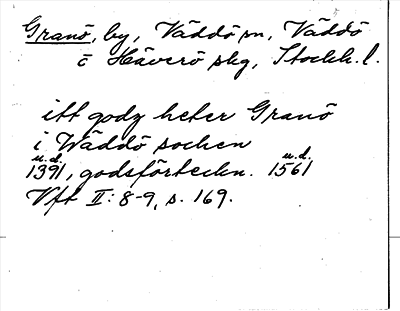 Granö, by, Väddö sn, Väddö
o Häverö skg, Stockh. l.
itt godz heter Granö
i Wäddö sochen
u.d. u.d.
1391, godsförteckn. 1561
Vft II: 8-9, s. 169.